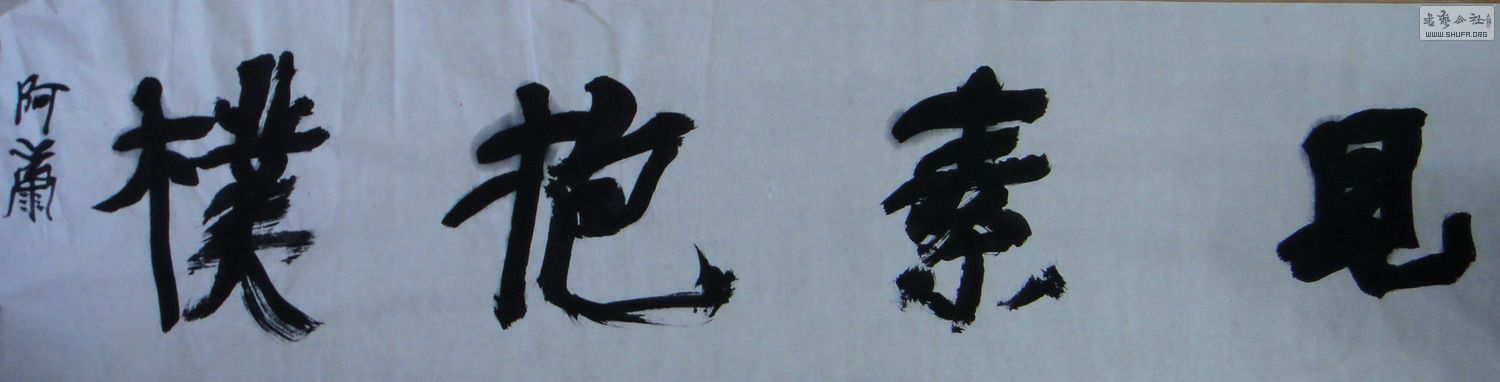 見素抱樸
阿蕭
書藝公社
WWW.SHUFA.ORG